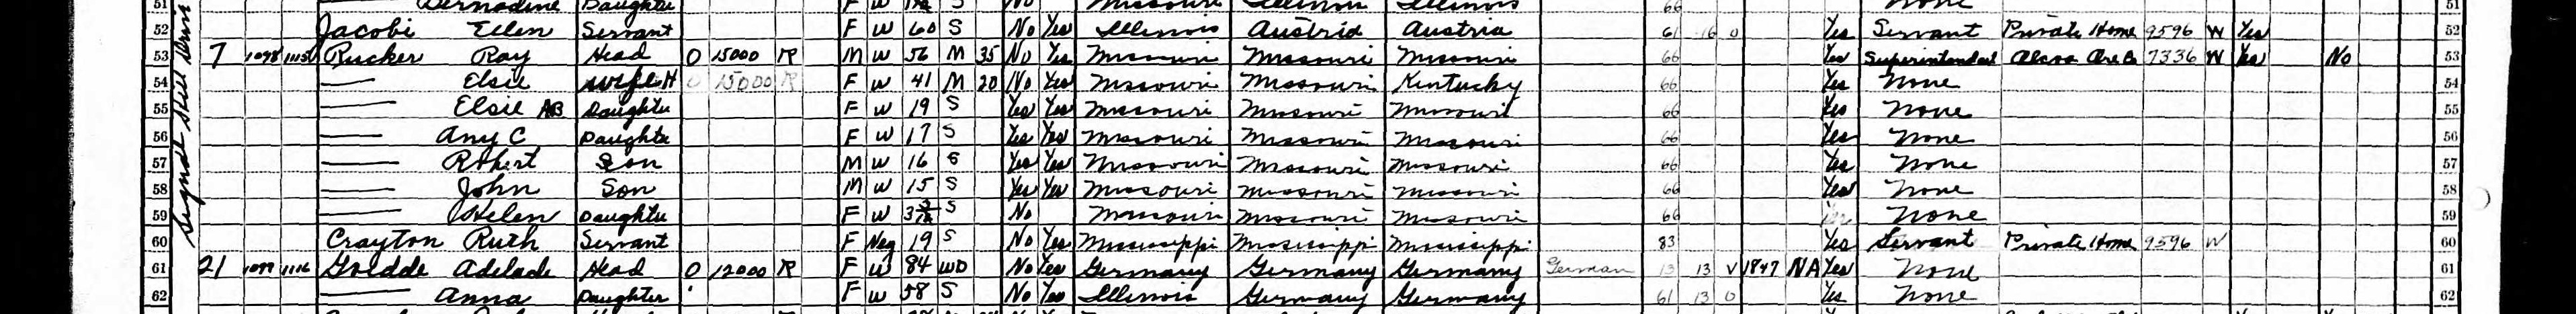 51 Bernadine Daughter F W S No Missouri Illinois Illinois 66 None 51
52 Jacobi Ellen Servant F W 60 S No Yes Illinois Austria Austria 61 16 0 Yes Servant Private Home 9596 W Yes 52
53 7 1098 1115 Rucker Ray Head O 15000 R M W 56 M 35 No Yes Missouri Missouri Missouri 66 Yes Superintendent 7336 W Yes No 53
54 — Elsie wife H O 15000 R F W 41 M 20 No Yes Missouri Missouri Kentucky 66 Yes None 54
55 — Elsie AB Daughter F W 19 S Yes Yes Missouri Missouri Missouri 66 Yes None 55
56 — Amy C Daughter F W 17 S Yes Yes Missouri Missouri Missouri 66 Yes None 56
57 — Robert Son M W 16 S Yes Yes Missouri Missouri Missouri 66 Yes None 57
58 — John Son M W 15 S Yes Yes Missouri Missouri Missouri 66 Yes None 58
59 — Helen Daughter F W S No Missouri Missouri Missouri 66 None 59
60 Crayton Ruth Servant F Neg 19 S No Yes Mississippi Mississippi Mississippi 83 Yes Servant Private Home 9596 W 60
61 21 1099 1116 Goedde Adelade Head O 12000 R F W 84 WD No Yes Germany Germany Germany German 13 13 V 1847 NA Yes None 61
62 — Anna Daughter F W 58 S No Yes Illinois Germany Germany 61 13 0 Yes None 62